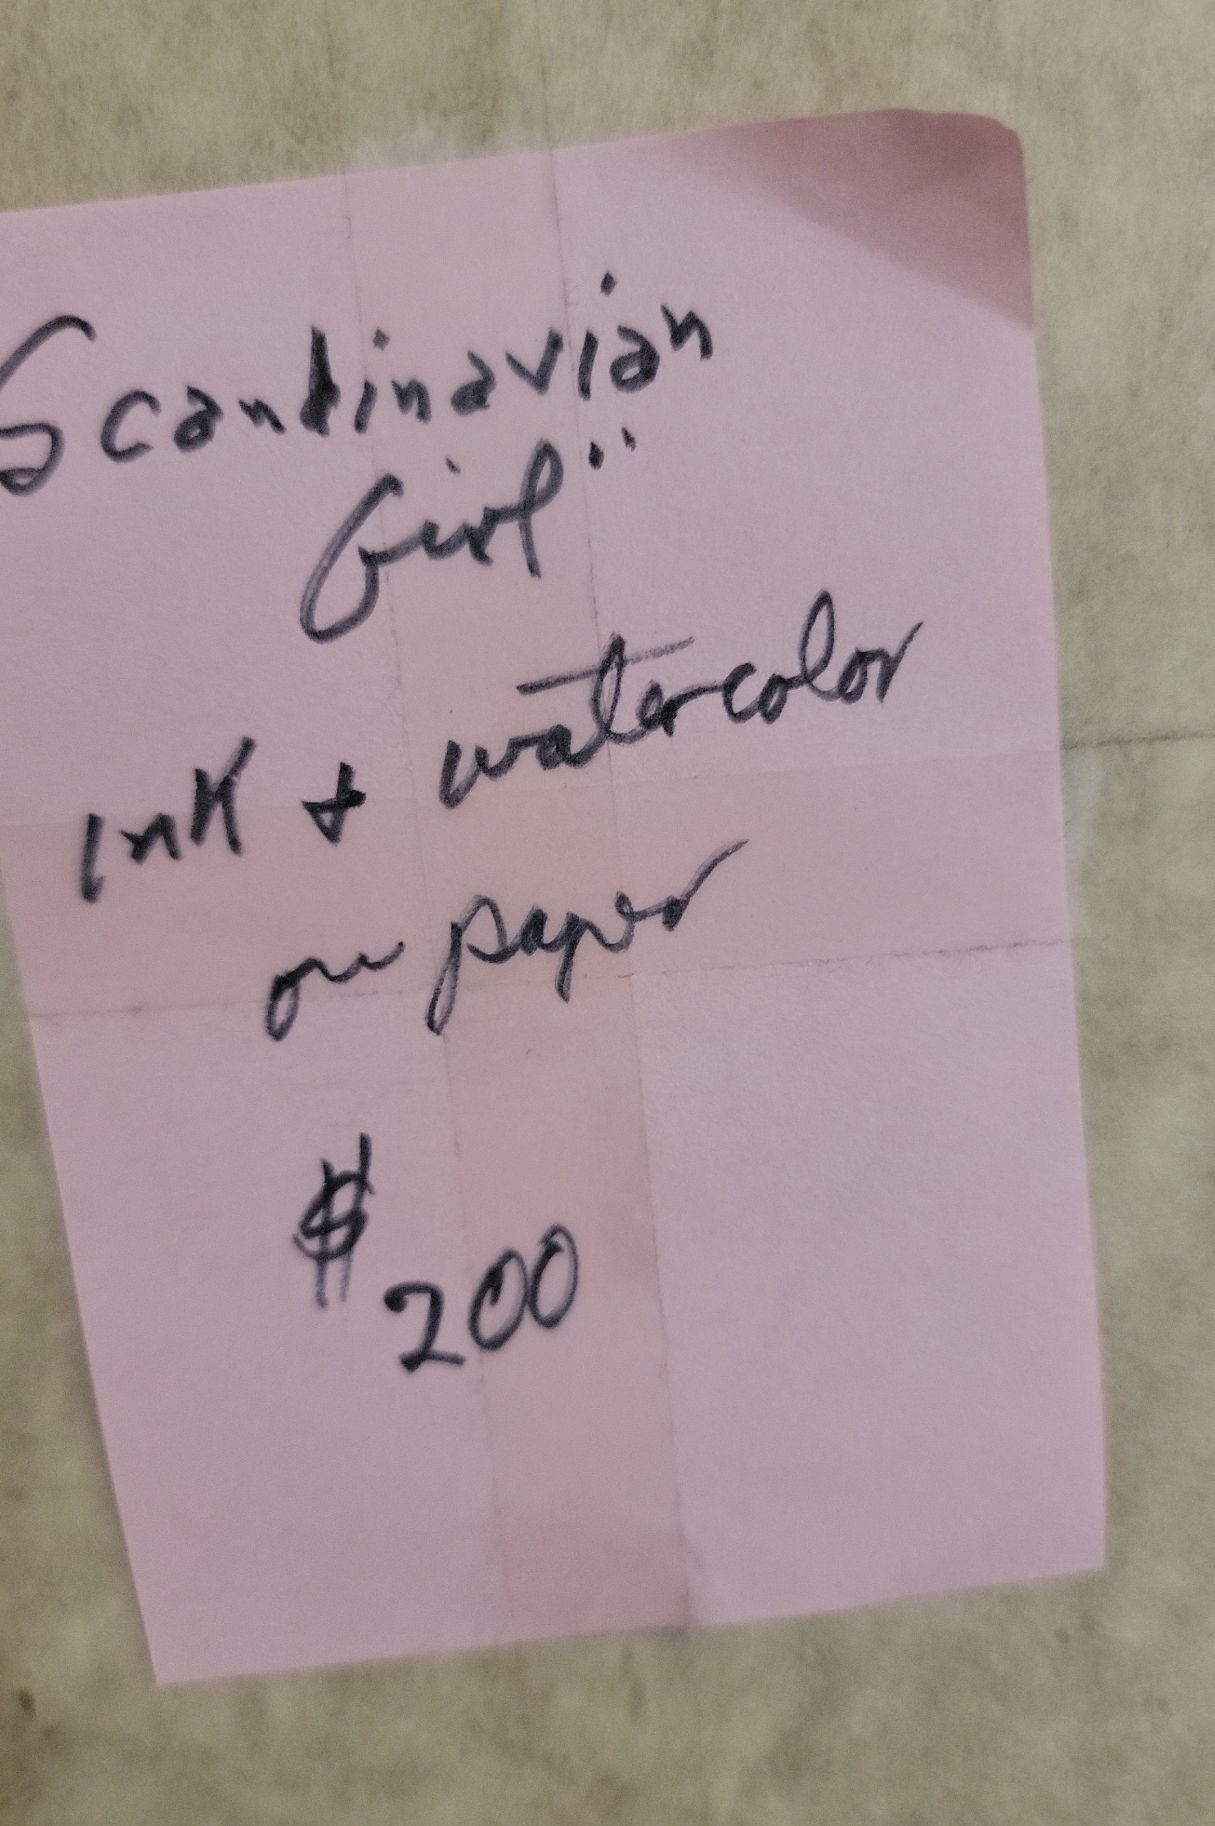 Scandinavian
Girl"
ink + watercolor
on paper
$200